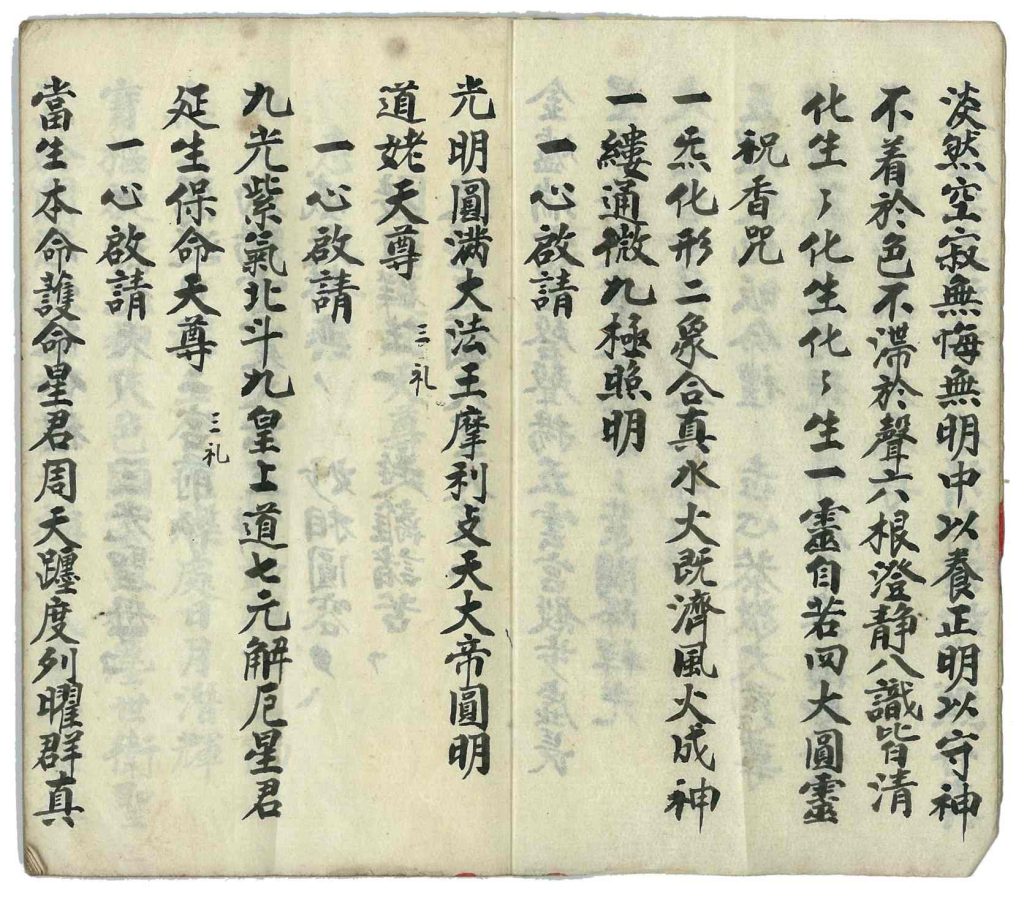 淡然空寂無悔無明中以養正明以守神
不着於色不滯於聲六根澄静八識皆清
化生〻化生化〻生一靈自若四大圓靈
祝香咒
一炁化形二象合真水火既濟風火成神
一縷通微九極照明
一心啟請
光明圓滿大法王摩利支天大帝圓明
道姥天尊 三礼
一心啟請
九光紫氣北斗九皇上道七元解厄星君
延生保命天尊 三礼
一心啟請
當生本命護命星君周天躔度列曜群真